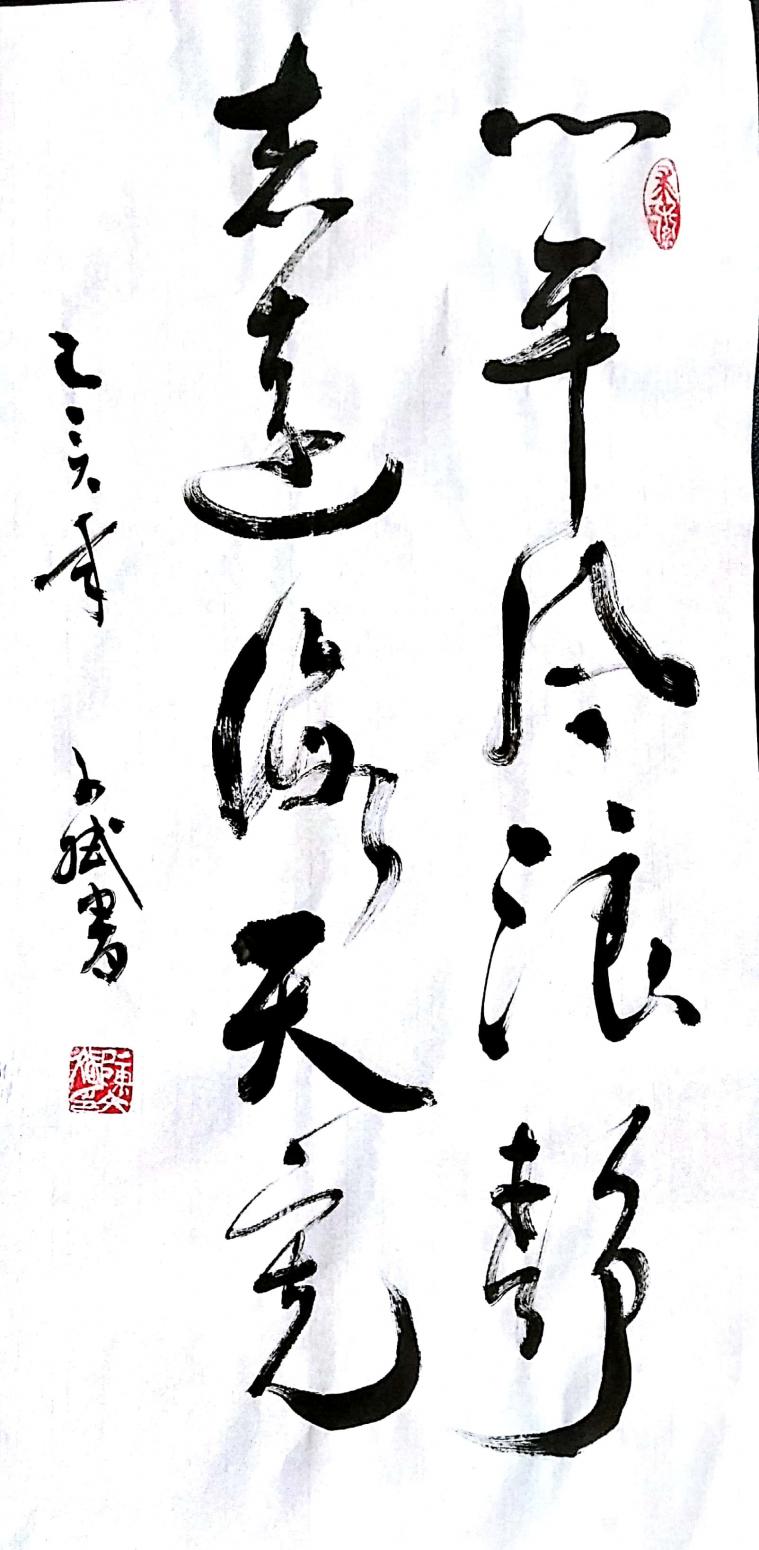 心平风浪静
志远海天宽
己亥年
书